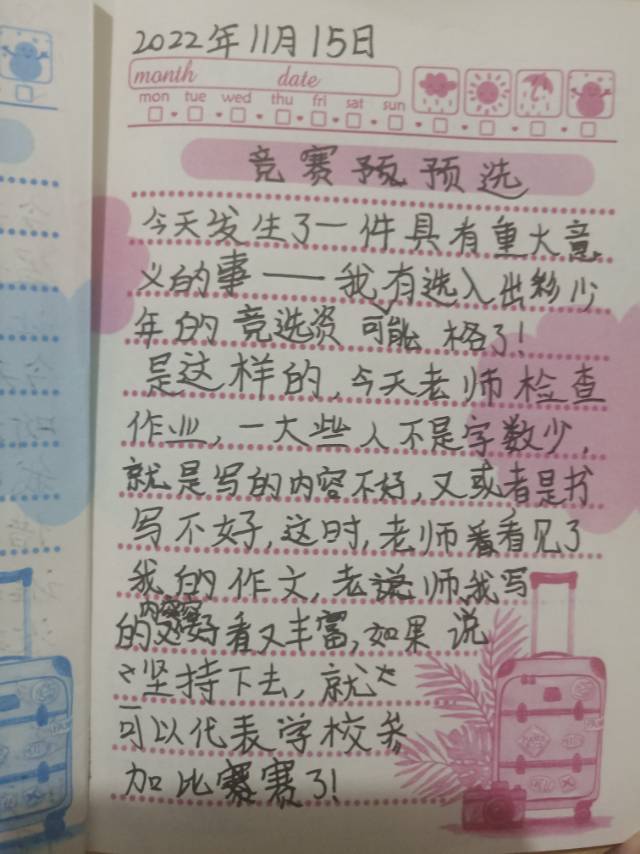 2022年11月15日
month date
mon tue wed thu fri sat sun
竞赛预选
今天发生了一件具有重大意
义的事——我有选入出彩少
年的竞选资可能格了!
是这样的,今天老师检查
作业,一大些人不是字数少,
就是写的内容不好,又或者是书
写不好,这时,老师看见了
我的作文,老师我写
内容
的好看又丰富,如果说
坚持下去,就
可以代表学校参
加比赛了!